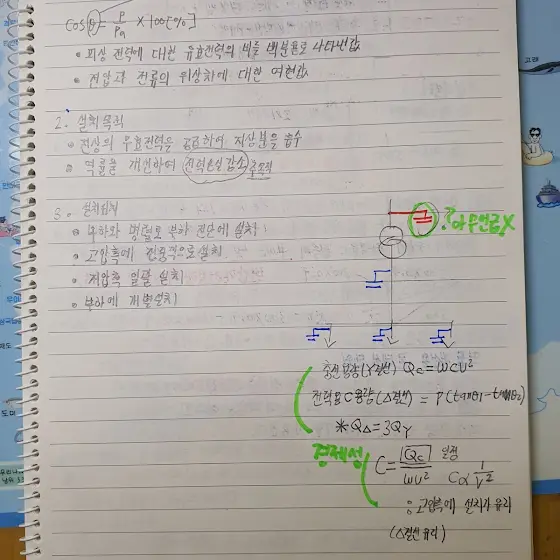 cosθ = P/Pa × 100[%]
• 피상 전력에 대한 유효전력의 비를 백분율로 나타낸값
• 전압과 전류의 위상차에 대한 여현값
2. 설치목적
• 진상의 무효전력을 공급하여 지상분을 흡수
• 역률을 개선하여 전력손실 감소 주목적
3. 설치
• 부하와 병렬로 부하 전단에 설치
• 고압측에 설치
• 저압측 일괄 설치
• 부하에 개별설치
? 아무언급X
용량(Y결선) Qc = ωCV²
전력용C용량(Δ결선) = P(tanθ1-tanθ2)
* QΔ = 3QY
경제성
C = Qc/ωV² 일정 C∝1/V²
∴ 고압측에 설치가 유리
(Δ결선 유리)
고래
도미